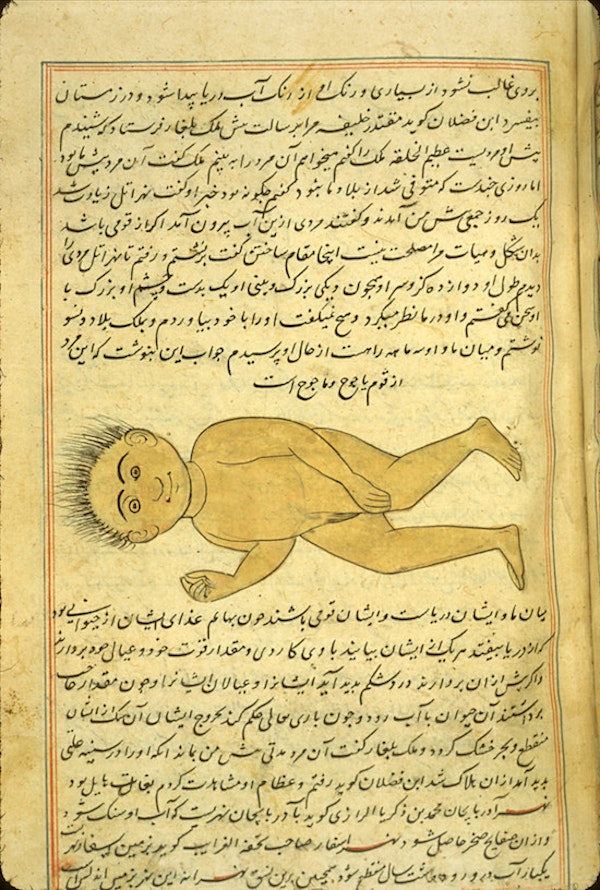 بروی غالب نشود از بسیاری و رنک او از رنک آب دریا پیدا شود و در زمستان
بیفسرد ابن فضلان کوید مقتدر خلیفه مرا برسالت پیش ملک بلغار فرستاد که شنیدم
پیش او مردیست عظیم الخلقه ملک را کفتم میخواهم آن مرد را به بینم ملک کفت آن مرد پیش ما بود
اما روزی چندست که متوفی شد از بلاد ما نبود کفتم چکونه بود خبر او کفت نهر اتل زیادت شد
یک روز جمعی پیش من آمدند و کفتند مردی ازین آب بیرون آمد اکر از قومی باشد
بدان شکل و هیات مرا مصلحت نیست اینجا مقام ساختن کفت برنشستم و رفتم تا نهر اتل مردی را
دیدم طول او دوازده کز و سر او همچون دیکی بزرک و بینی او یک بدست و چشم او بزرک با
او سخن می کفتم و او در ما نظر میکرد و هیچ نمیکفت او را با خود بیاوردم و بملک بلاد ویسو
نوشتم و میان ما و او سه ماهه راهست از حال او پرسیدم جواب این بنوشت که این مرد
از قوم یاجوج و ماجوج است
میان ما و ایشان دریاست و ایشان قومی باشند چون بهایم غذای ایشان از حیوانی بود
که از دریا بیفتد هر یک از ایشان بیایند با وی کاردی و مقدار قوت خود و عیال خود بردارند
و اکر بیش از آن بردارند درد شکم بدید آید ایشانرا و عیالان ایشانرا و چون مقدار حاجت
برداشتند آن حیوان با آب رود و چون باری تعالی حکم کند بخروج ایشان آن سمک از ایشان
منقطع و بحر خشک کردد و ملک بلغار کفت آن مرد مدتی پیش من بماند انکه او را در سینه علتی
بدید آمد از آن هلاک شد ابن فضلان کوید رفتم و عظام او مشاهدت کردم بغایت هایل بود
نهر آذربایجان محمد بن زکریا الرازی کوید بآذربایجان نهریست که آب او سنک شود
و از آن صفایح صخر حاصل شود نهر اسفار صاحب تحفة الغرایب کوید بزمین اسفار نهریست
یکسال آب در وی رود و هشت سال منقطع شود همچنین برین نسق